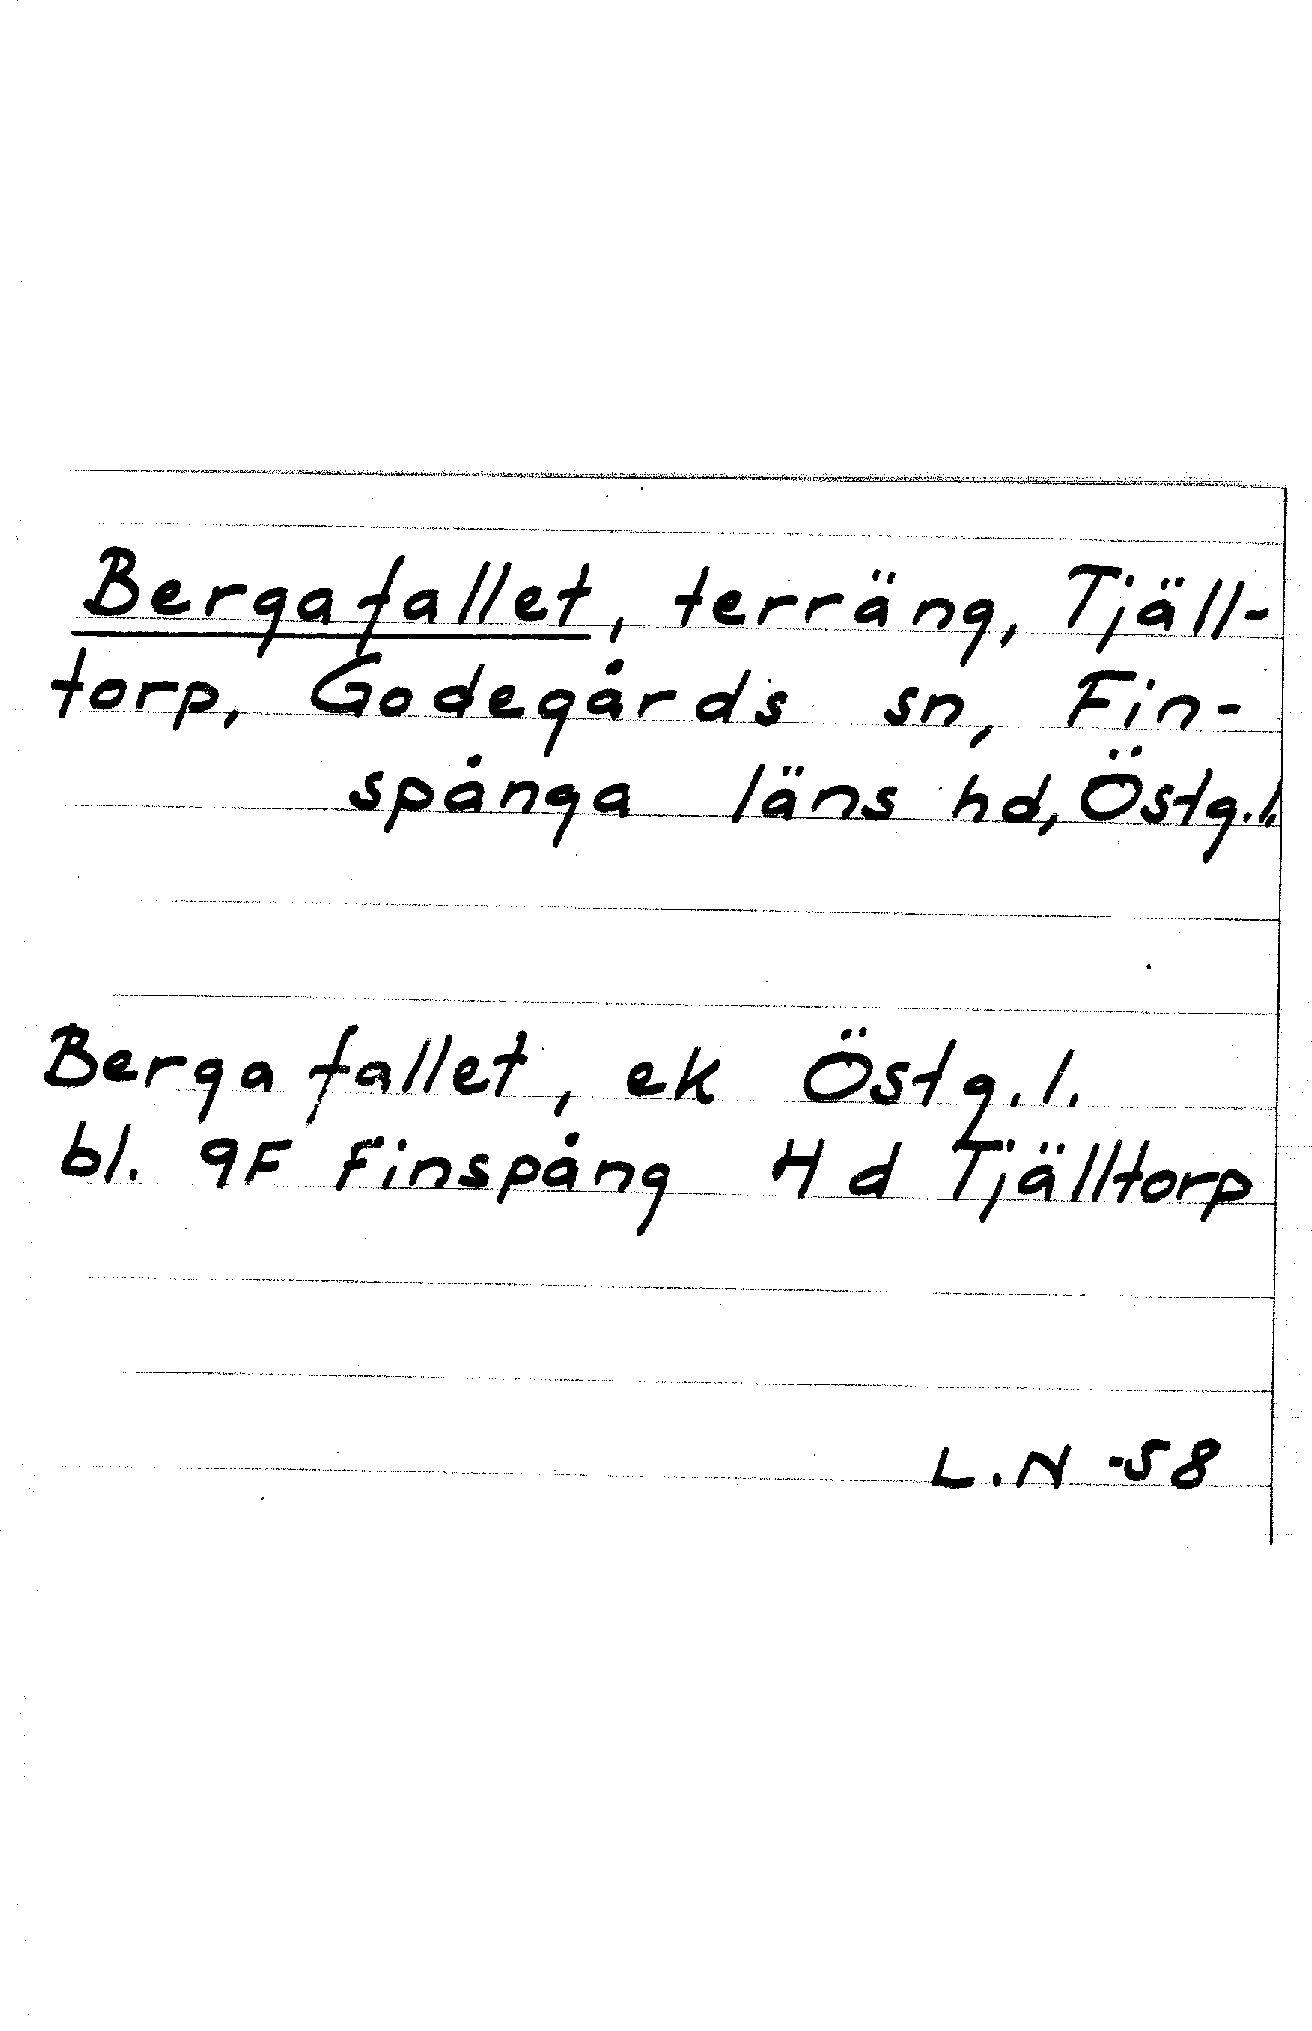 Bergafallet, terräng, Tjäll-
torp, Godegårds sn, Fin-
spånga läns hd, Östg.l.
Berga fallet, ek Östg.l.
bl. 9F Finspång H d Tjälltorp
L.N -58